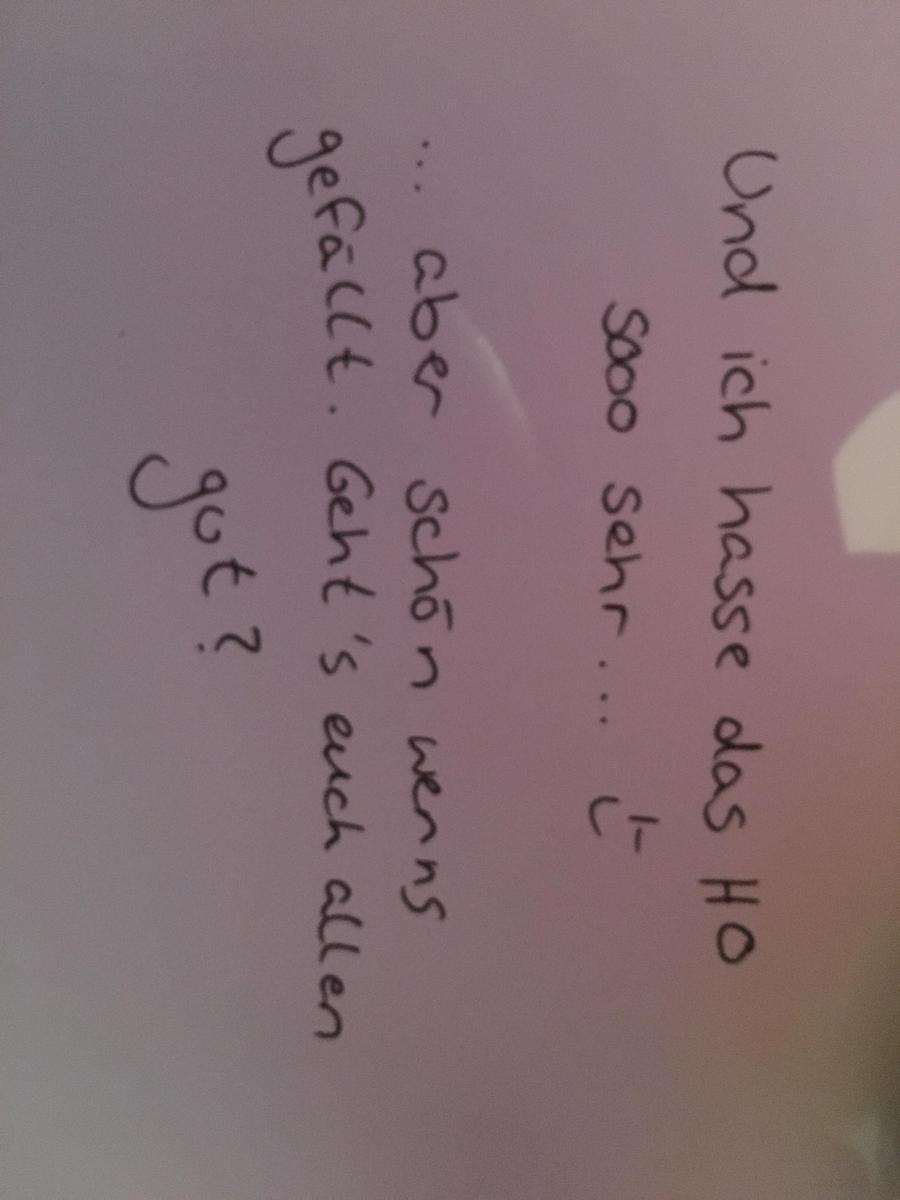 Und ich hasse das HO
sooo sehr...
... aber schön wenns
gefällt. Geht's euch allen
gut?